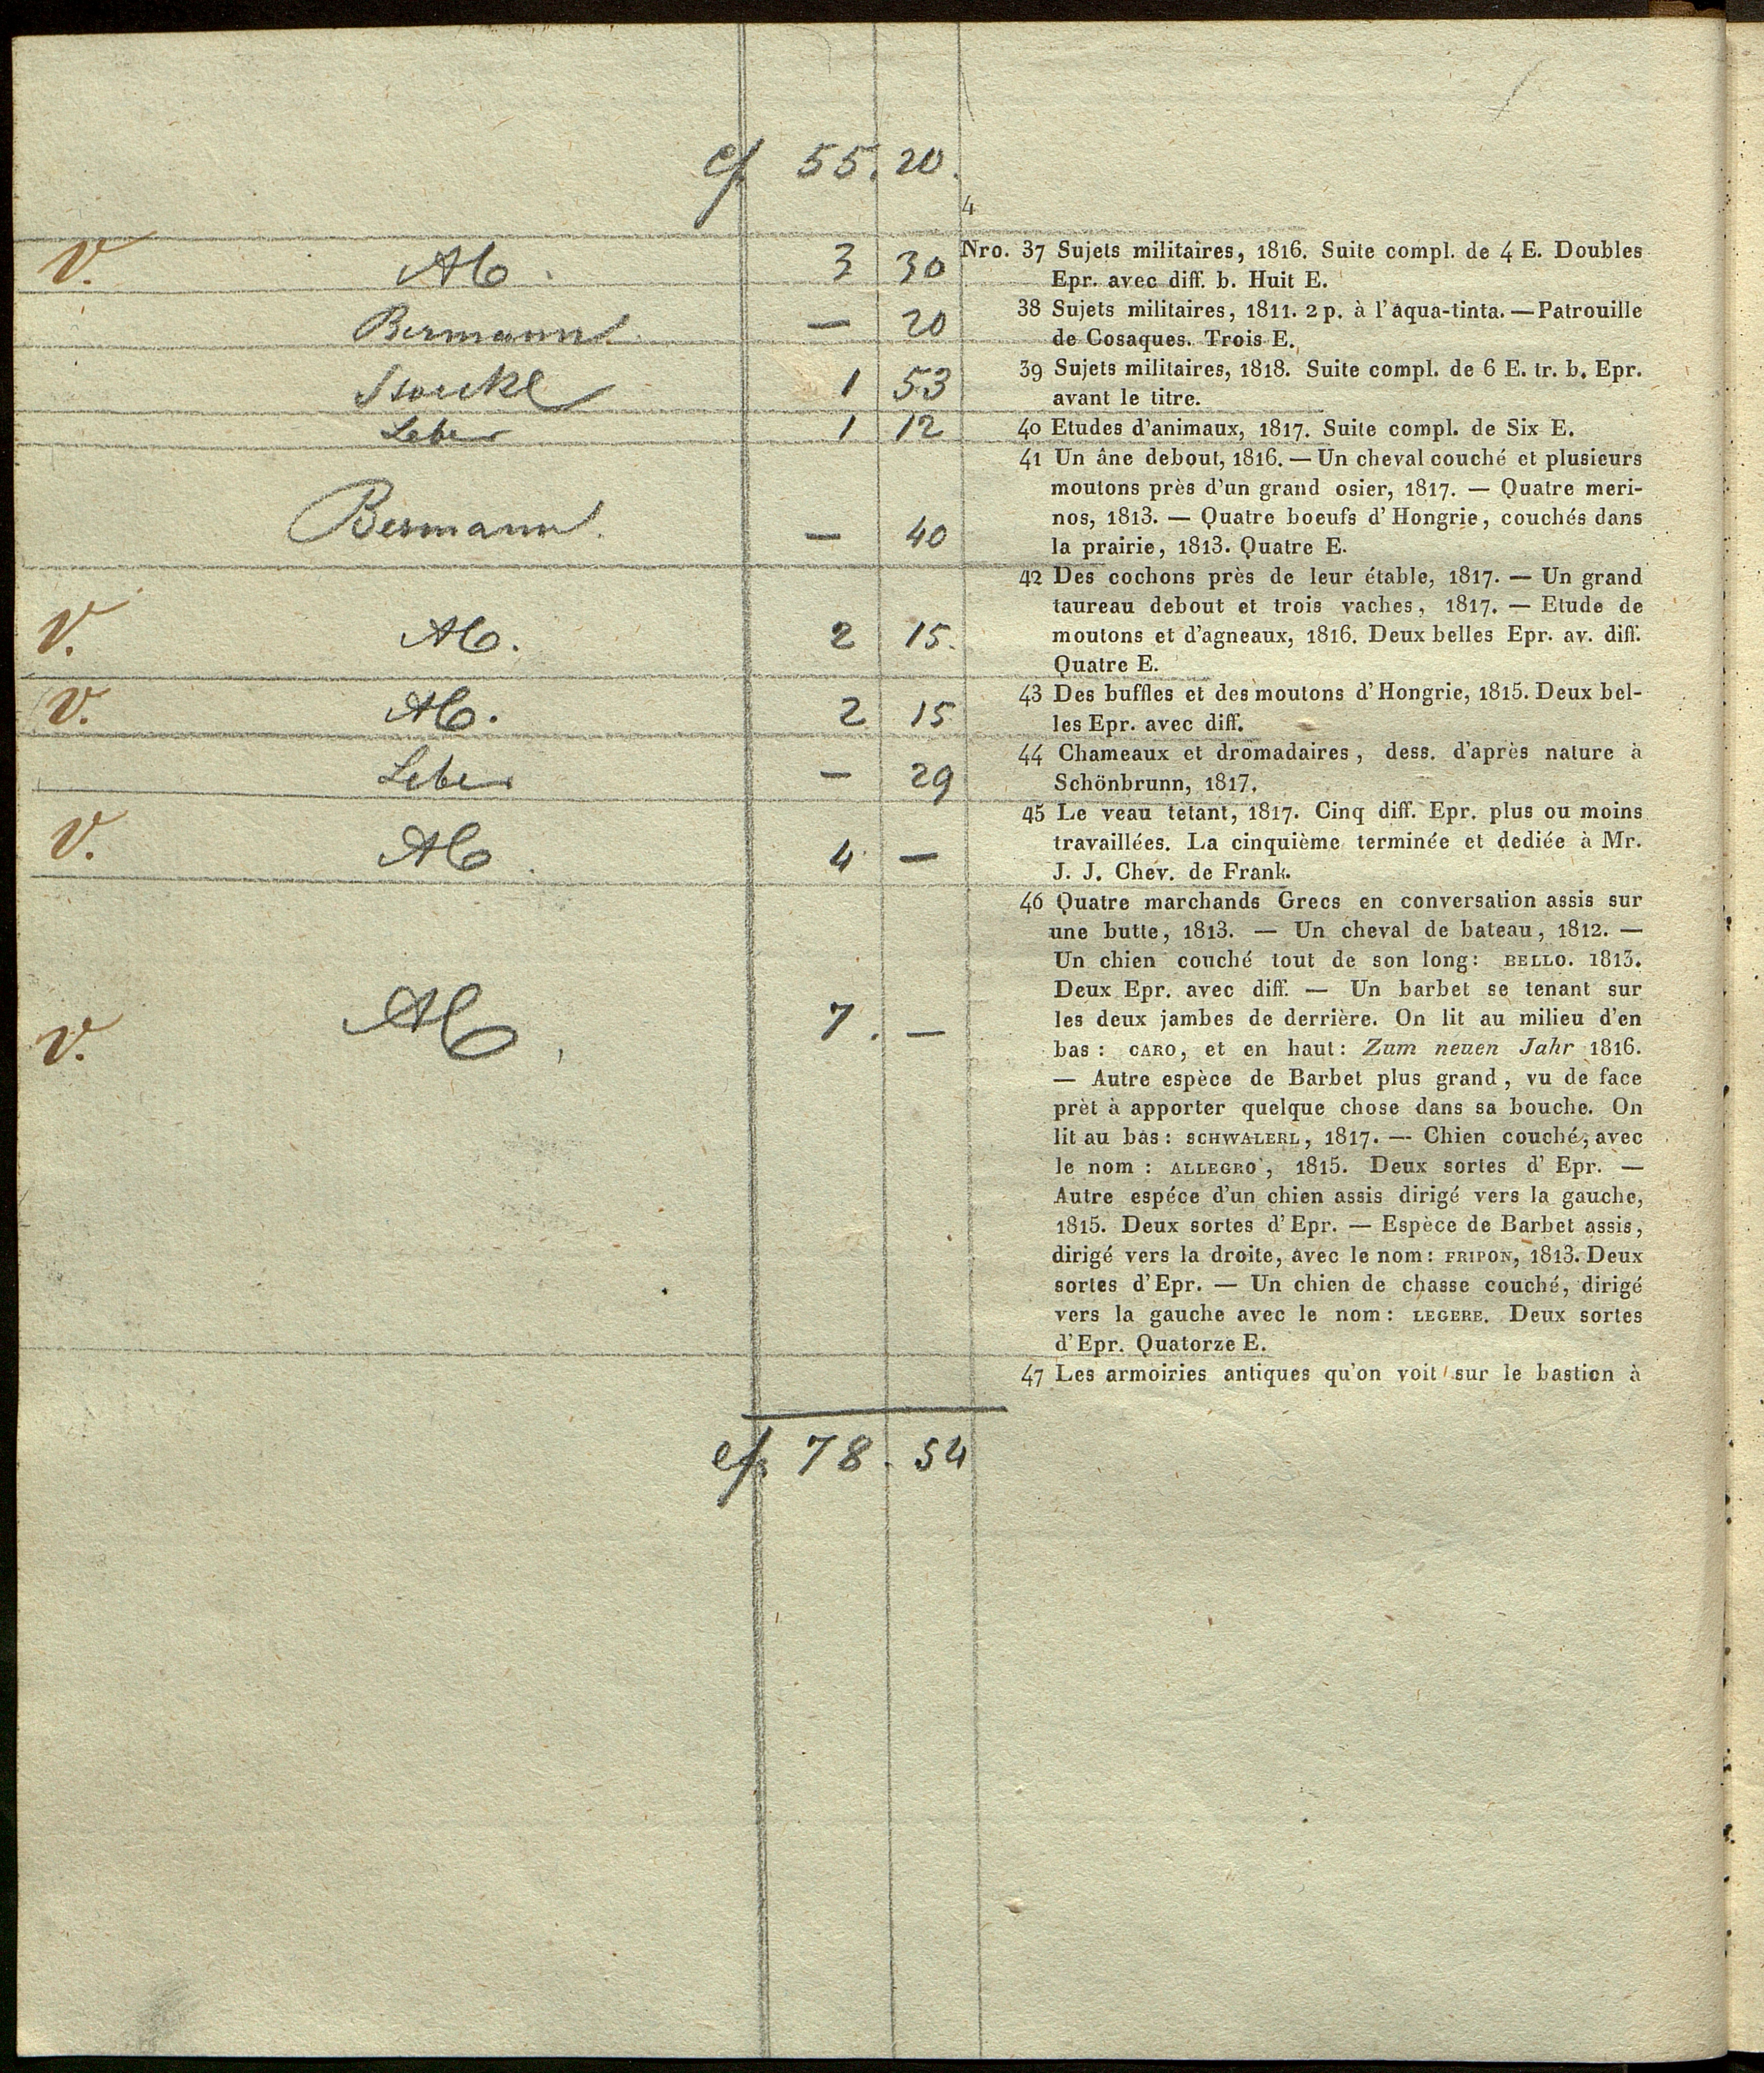 55. 20.
4
V. Ab. 3 30
Bermann. — 20
Stöckl 1 53
Leber 1 12
Bermann. — 40
V. Ab. 2 15.
V. Ab. 2 15
Leber — 29
V. Ab. 4 —
V. Ab. 7. —
78. 54
Nro. 37 Sujets militaires, 1816. Suite compl. de 4 E. Doubles
Epr. avec diff. b. Huit E.
38 Sujets militaires, 1811. 2 p. à l'aqua-tinta. — Patrouille
de Cosaques. Trois E.
39 Sujets militaires, 1818. Suite compl. de 6 E. tr. b. Epr.
avant le titre.
40 Etudes d'animaux, 1817. Suite compl. de Six E.
41 Un âne debout, 1816. — Un cheval couché et plusieurs
moutons près d'un grand osier, 1817. — Quatre meri-
nos, 1813. — Quatre boeufs d'Hongrie, couchés dans
la prairie, 1813. Quatre E.
42 Des cochons près de leur étable, 1817. — Un grand
taureau debout et trois vaches, 1817. — Etude de
moutons et d'agneaux, 1816. Deux belles Epr. av. diff.
Quatre E.
43 Des buffles et des moutons d'Hongrie, 1815. Deux bel-
les Epr. avec diff.
44 Chameaux et dromadaires, dess. d'après nature à
Schönbrunn, 1817.
45 Le veau tetant, 1817. Cinq diff. Epr. plus ou moins
travaillées. La cinquième terminée et dediée à Mr.
J. J. Chev. de Frank.
46 Quatre marchands Grecs en conversation assis sur
une butte, 1813. — Un cheval de bateau, 1812. —
Un chien couché tout de son long: BELLO. 1813.
Deux Epr. avec diff. — Un barbet se tenant sur
les deux jambes de derrière. On lit au milieu d'en
bas: CARO, et en haut: Zum neuen Jahr 1816.
— Autre espèce de Barbet plus grand, vu de face
prèt à apporter quelque chose dans sa bouche. On
lit au bas: SCHWALERL, 1817. — Chien couché, avec
le nom: ALLEGRO, 1815. Deux sortes d'Epr. —
Autre espéce d'un chien assis dirigé vers la gauche,
1815. Deux sortes d'Epr. — Espèce de Barbet assis,
dirigé vers la droite, avec le nom: FRIPON, 1813. Deux
sortes d'Epr. — Un chien de chasse couché, dirigé
vers la gauche avec le nom: LEGERE. Deux sortes
d'Epr. Quatorze E.
47 Les armoiries antiques qu'on voit sur le bastion à